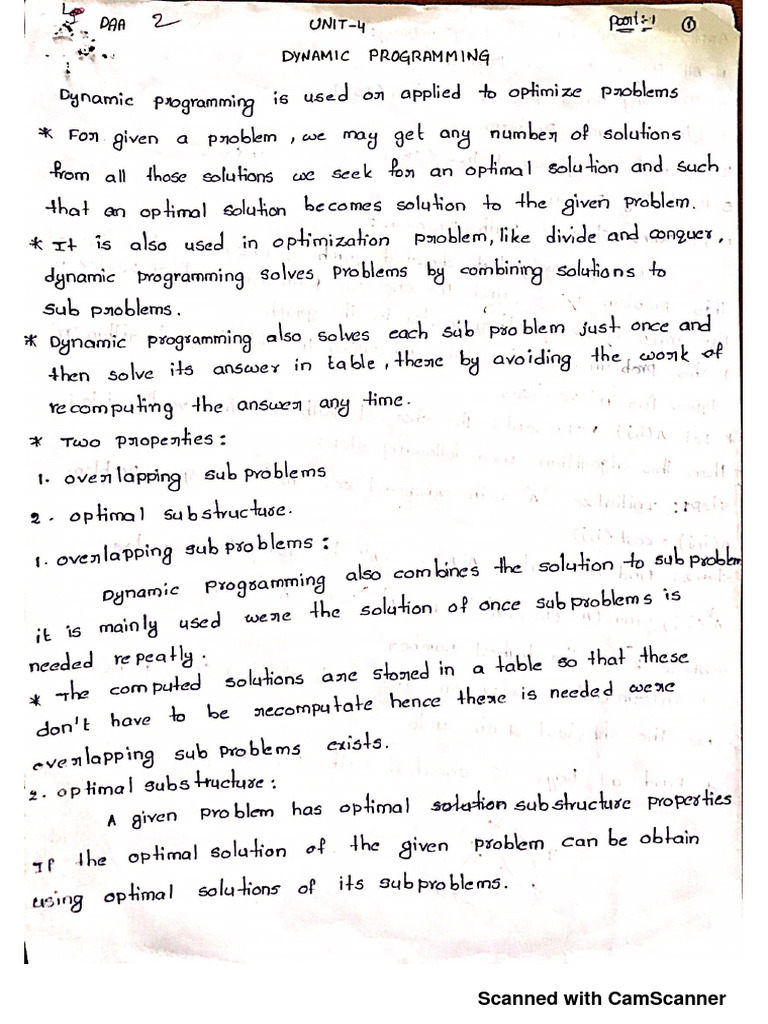 DAA 2 UNIT-4 Part:-1 ①
DYNAMIC PROGRAMMING
Dynamic programming is used or applied to optimize problems
* For given a problem, we may get any number of solutions
from all those solutions we seek for an optimal solution and such
that an optimal solution becomes solution to the given problem.
* It is also used in optimization problem, like divide and conquer,
dynamic programming solves, problems by combining solutions to
sub problems.
* Dynamic programming also solves each sub problem just once and
then solve its answer in table, there by avoiding the work of
recomputing the answer any time.
* Two properties:
1. overlapping sub problems
2. optimal substructure.
1. overlapping sub problems:
Dynamic programming also combines the solution to sub problem
it is mainly used were the solution of once sub problems is
needed repeatly.
* The computed solutions are stored in a table so that these
don't have to be recomputate hence there is needed were
overlapping sub problems exists.
2. optimal substructure:
A given problem has optimal solution substructure properties
If the optimal solution of the given problem can be obtain
using optimal solutions of its subproblems.
Scanned with CamScanner